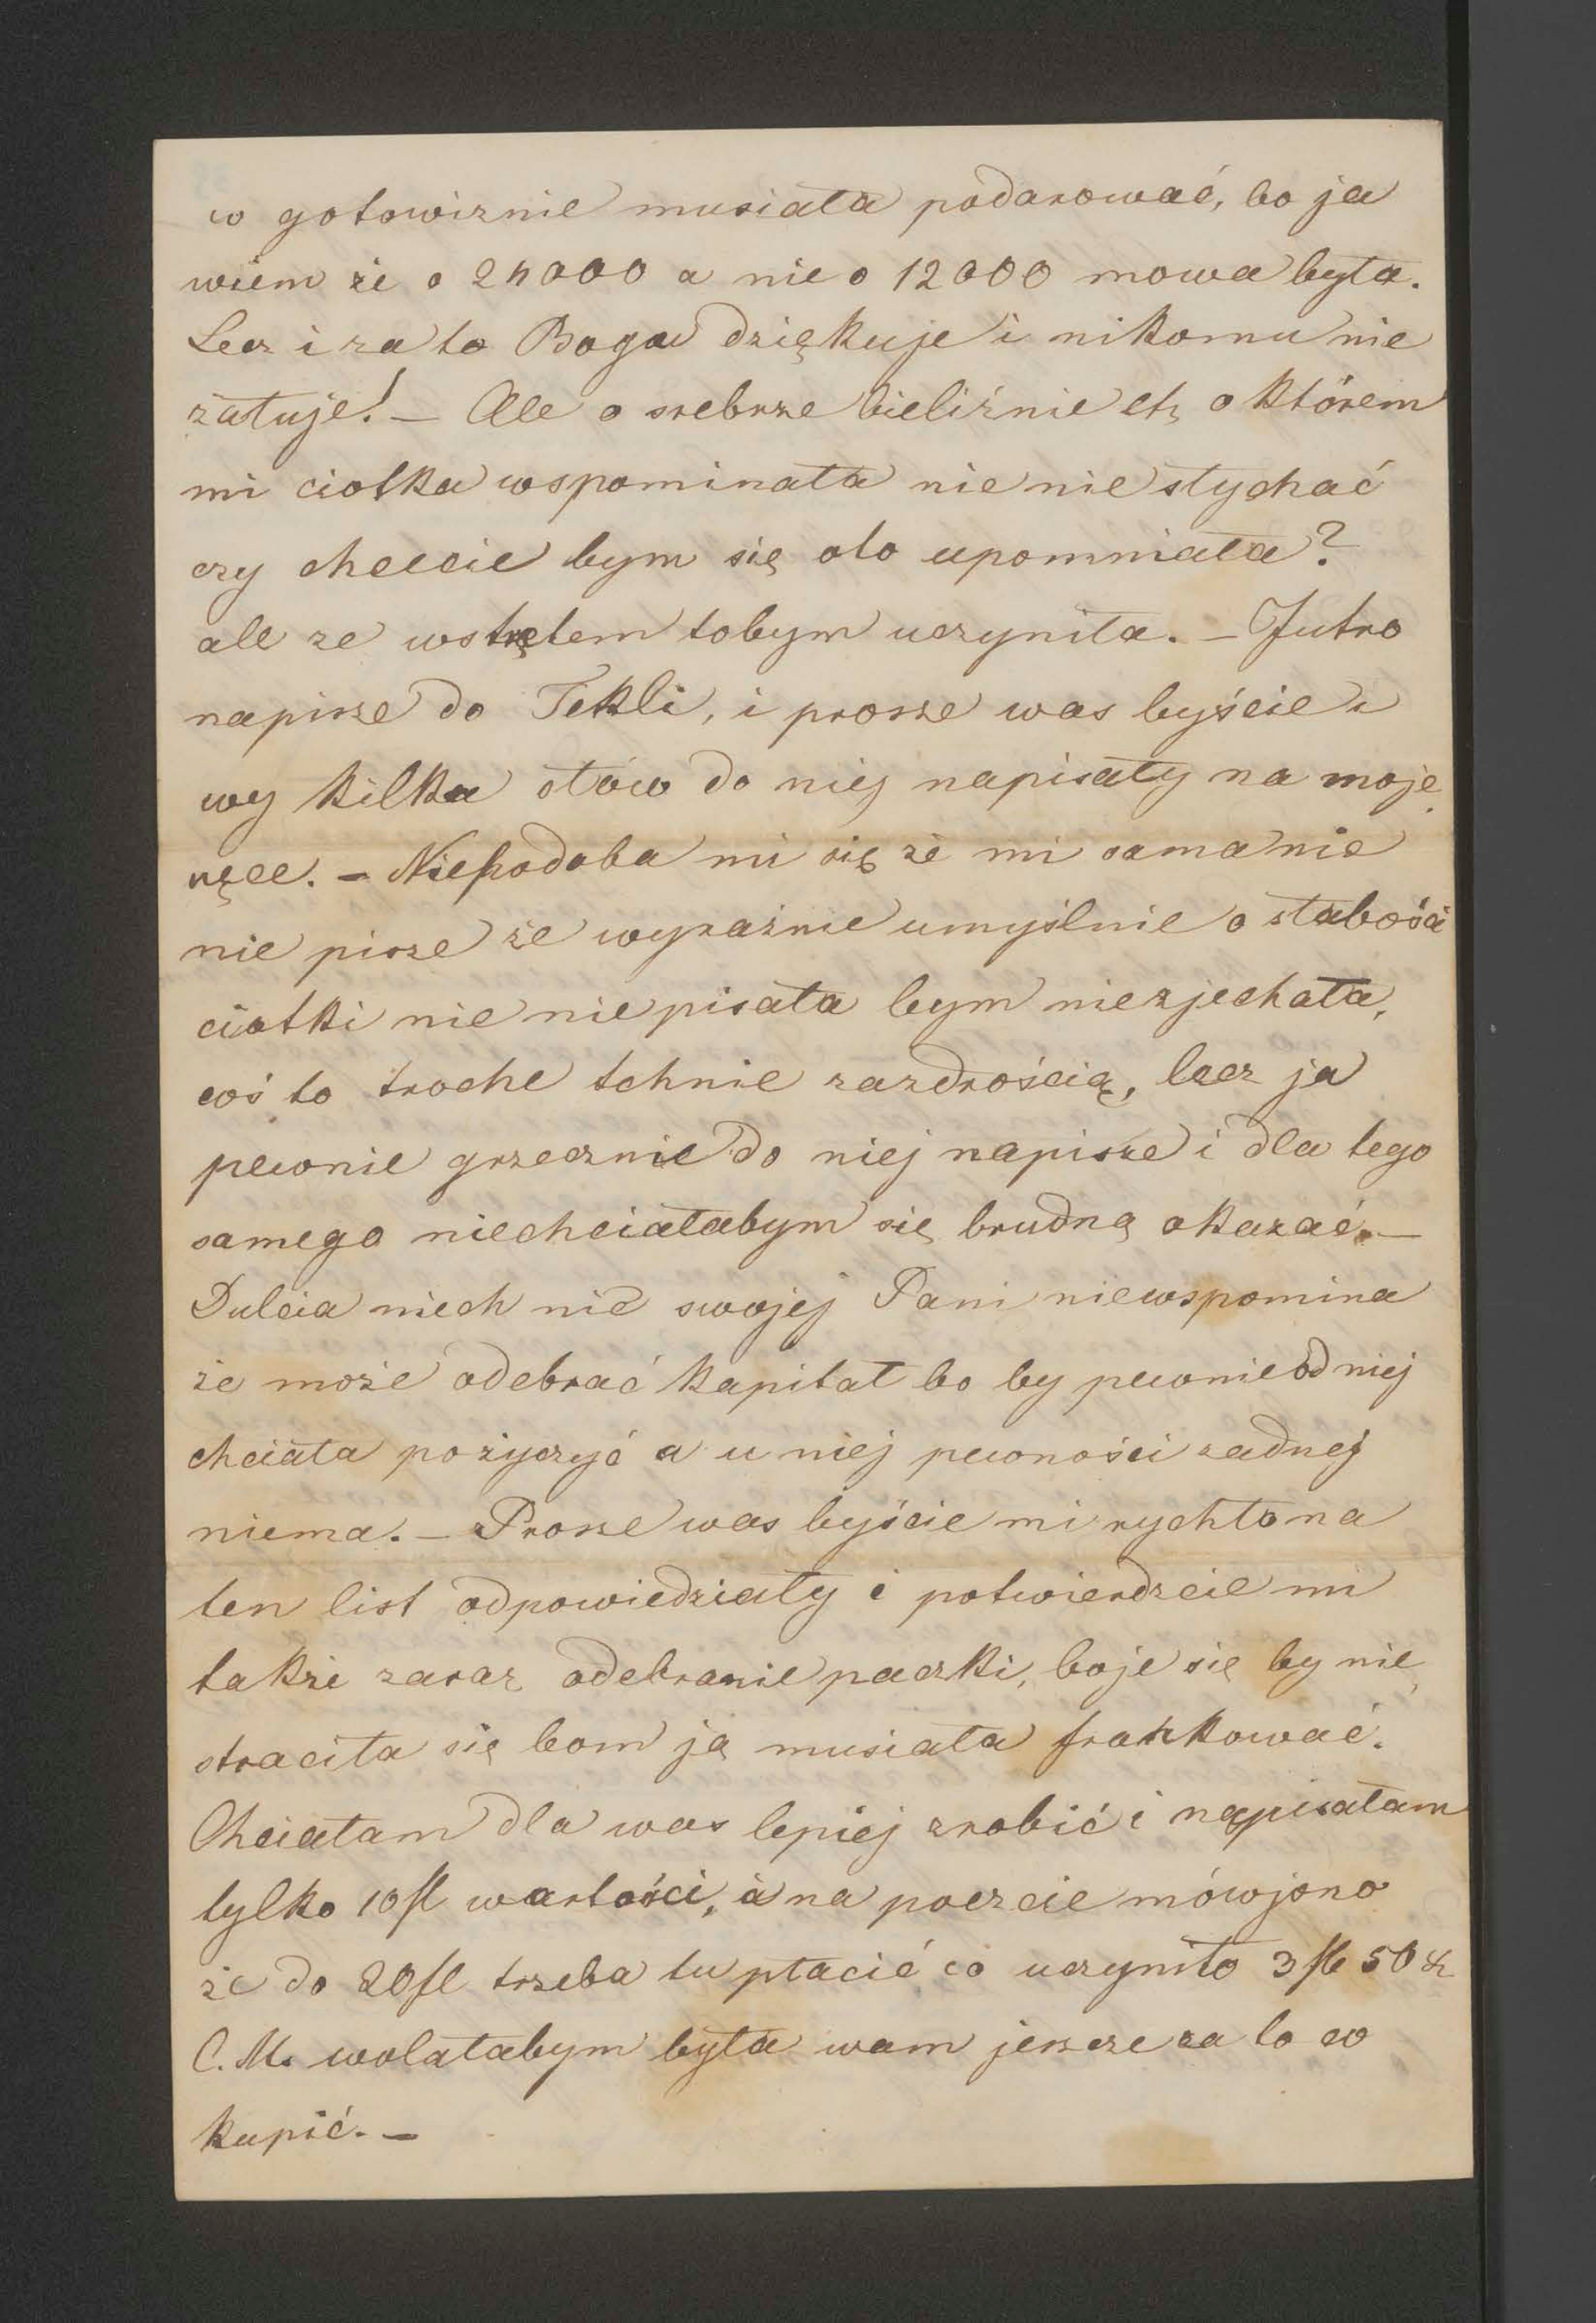 w gotowiznie musiała podarować, bo ja
wiem że o 24000 a nie o 12000 mowa była.
Lecz i za to Bogu dziękuje i nikomu nie
żałuje! – Ale o srebrze bieliźnie etc o którem
mi ciotka wspominała nic nie słychać
czy chcecie bym się oto upomniała?
ale ze wstrętem tobym uczyniła. – Jutro
napisze do Tekli, i prosze was byście i
wy kilka słów do niej napisały na moje
ręce. – Niepodoba mi się że mi sama nie
nie pisze że wyraźnie umyślnie o słabości
ciotki nic niepisała bym niezjechała,
coś to troche tchnie zazdrością, lecz ja
pewnie grzecznie do niej napisze i dla tego
samego niechciałabym się brudną okazać. –
Dulcia niech nic swojej Pani niewspomina
że może odebrać kapitał bo by pewnie od niej
chciała pożyczyć a u niej pewności żadnej
niema. – Prosze was byście mi rychło na
ten list odpowiedziały i potwierdzcie mi
także zaraz odebranie paczki, boje się by nie
straciła się bom ją musiała frankować.
Chciałam dla was lepiej zrobić i napisałam
tylko 10 fl wartości, a na poczcie mówjono
że do 20 fl trzeba tu płacić co uczyniło 3 fl 50 kr
C. M. wolałabym była wam jeszcze za to co
kupić. –